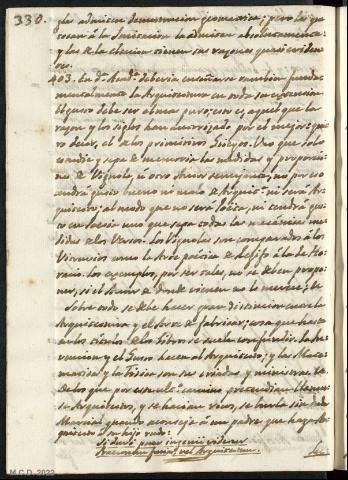 330.
las admiten demonstracion geometrica; pero las que
tocan à la Imitacion la admiten absolutamente:
y las de la eleccion tienen sus razones quasi eviden-
tes.
403. En dha Acad.ª deberia enseñarse tambien funda-
mentalmente la Arquitectura en orden su
El gusto debe ser el mas puro; esto es, aquel que la
razon y los siglos han autorizado por el mejor: quie-
ro decir, el de los primitivos Griegos. Uno que solo
estudie y sepa de memoria las medidas y proporcio-
nes de Viñola, ù otro Autor semejante, no por eso
tendrá gusto bueno ni malo de Arquit.ª ni será Ar-
quitecto; al modo que no será Poeta, ni tendrá gus-
to en Poesia uno que sepa todas las mecánicas me-
didas de los Versos. Los Viñolas son comparados à los
Vitruvios como la Arte poetica de à la de Ho-
racio. Los exemplos, por ser tales, no se deben propo-
ner, si el Autor de donde vienen no lo merece; &
Sobre todo se debe hacer gran distincion entre la
Arquitectura y el Arte de fabricar; cosa que hasta
en los titulos de los libros se suele confundir. La In-
vencion y el Gusto hacen al Arquitecto; y las Mate-
maticas y la Fisica son sus criadas y ministras &
De los que por este camino pretendian llamar-
se Arquitectos, y se hacian ricos, se burla sin duda
Marcial quando aconseja à un padre que haga Ar-
quitecto à su hijo rudo:
Si duri puer ingenii videtur
Praeconem facias, vel Architectum.
M.C.D. 2022